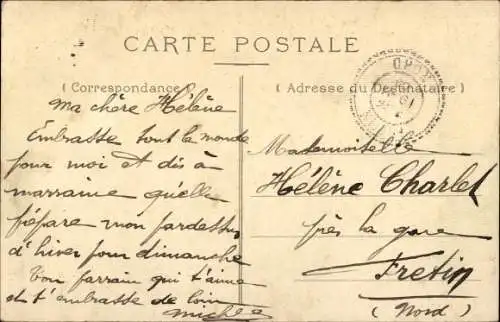 CARTE POSTALE
(Correspondance)
Ma chère Hélène
Embrasse tout le monde
pour moi et dis à
marraine qu'elle
prépare mon pardessus
d'hiver pour dimanche
Ton parrain qui t'aime
et t'embrasse de loin
(Adresse du Destinataire)
Mademoiselle
Hélène Charlet
près la gare
Fretin
(Nord)